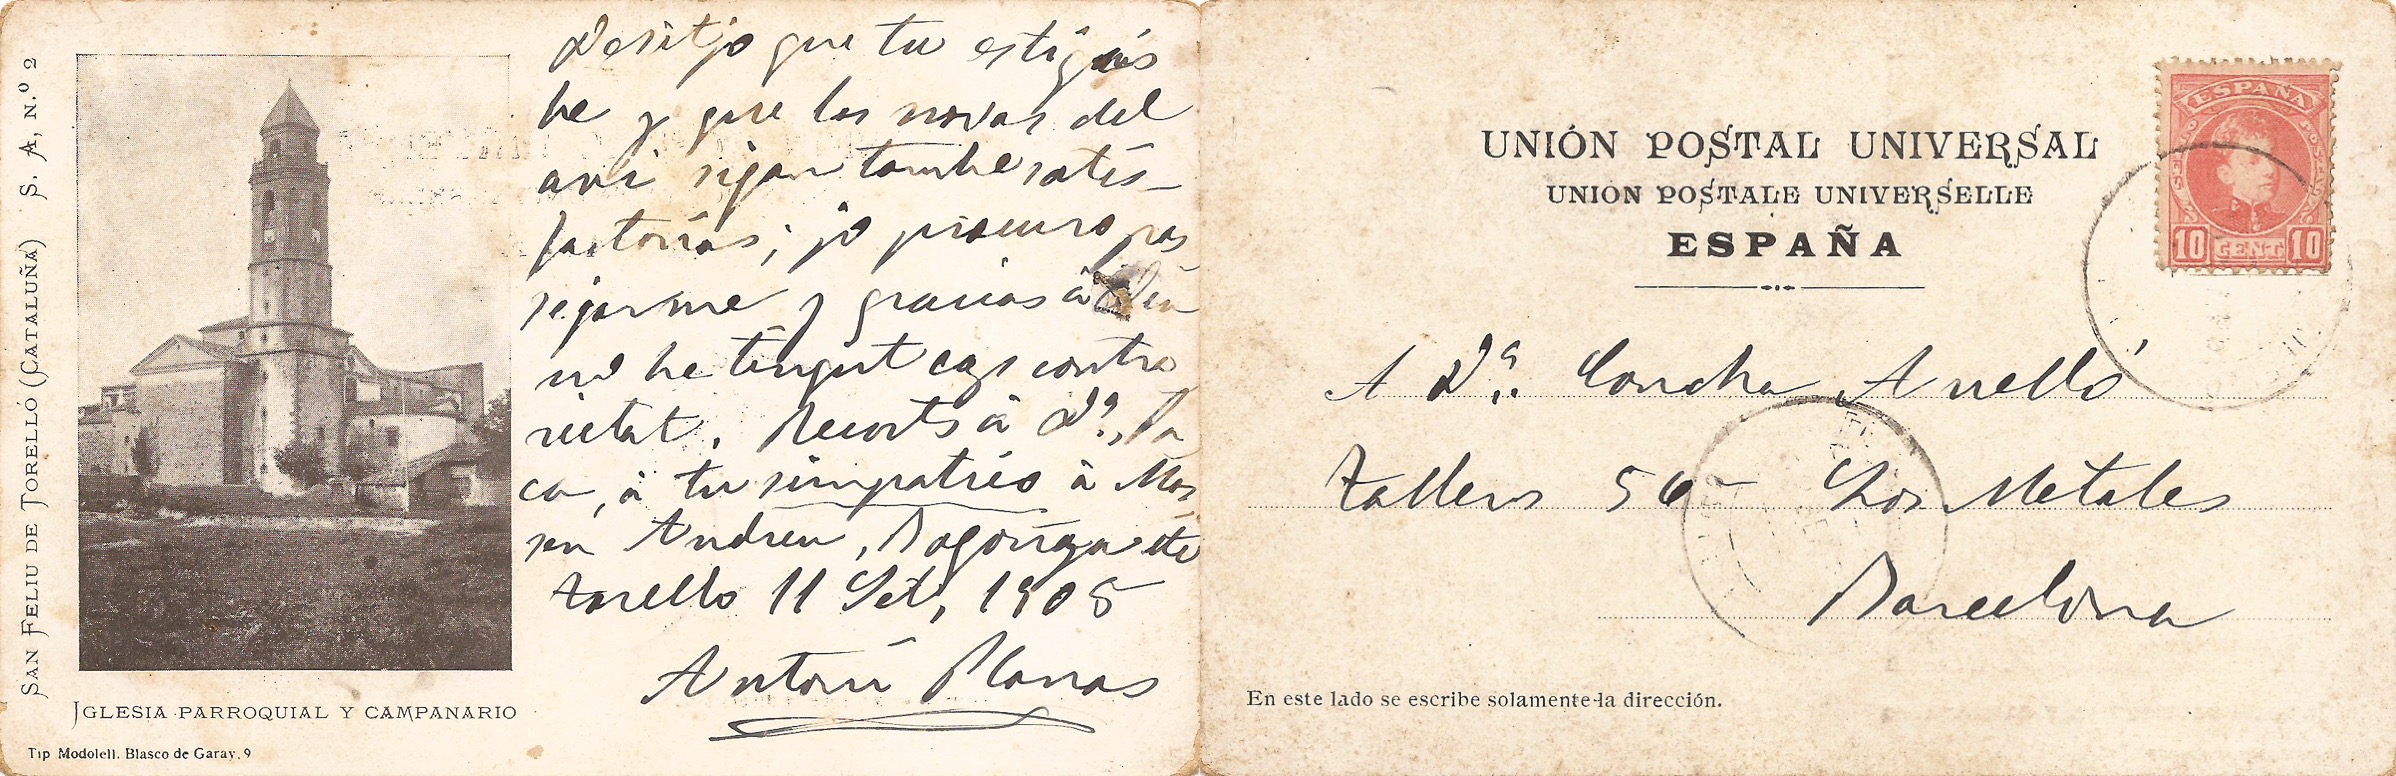 SAN FELIU DE TORELLÓ (CATALUÑA) S. A, N.º 2
IGLESIA PARROQUIAL Y CAMPANARIO
Tip Modolell. Blasco de Garay, 9
Desitjo que tu estigas
be y que las novas del
avi sigan tambe satis-
factorias; jo procuro pas
sejarme y gracias á Deu
no he tingut cap contra
rietat. Recorts á Dª. Pa
ca, á tu simpatico á Mos
sen Andreu, etc
Torello 11 Set, 1905
Antoni Planas
ESPAÑA
10 CENT 10
UNIÓN POSTAL UNIVERSAL
UNION POSTALE UNIVERSELLE
ESPAÑA
A Dª. Concha Anelló
Tallers 56- Los Metales
Barcelona
En este lado se escribe solamente la dirección.